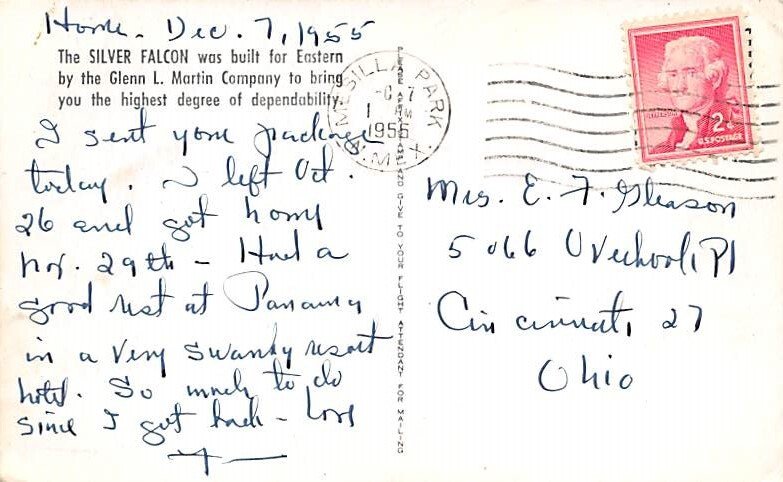 Home - Dec. 7, 1955
The SILVER FALCON was built for Eastern
by the Glenn L. Martin Company to bring
you the highest degree of dependability.
I sent your package
today. I left Oct.
26 and got home
Nov. 29th - Had a
good rest at Panama
in a very swanky resort
hotel. So much to do
since I got back - Love
PLEASE AFFIX NAME AND GIVE TO YOUR FLIGHT ATTENDANT FOR MAILING
MESILLA PARK
7
1 PM
1955
N. MEX.
JEFFERSON
2¢
U.S. POSTAGE
Mrs. E. F. Gleason
5066 Pl
Cincinnati 27
Ohio